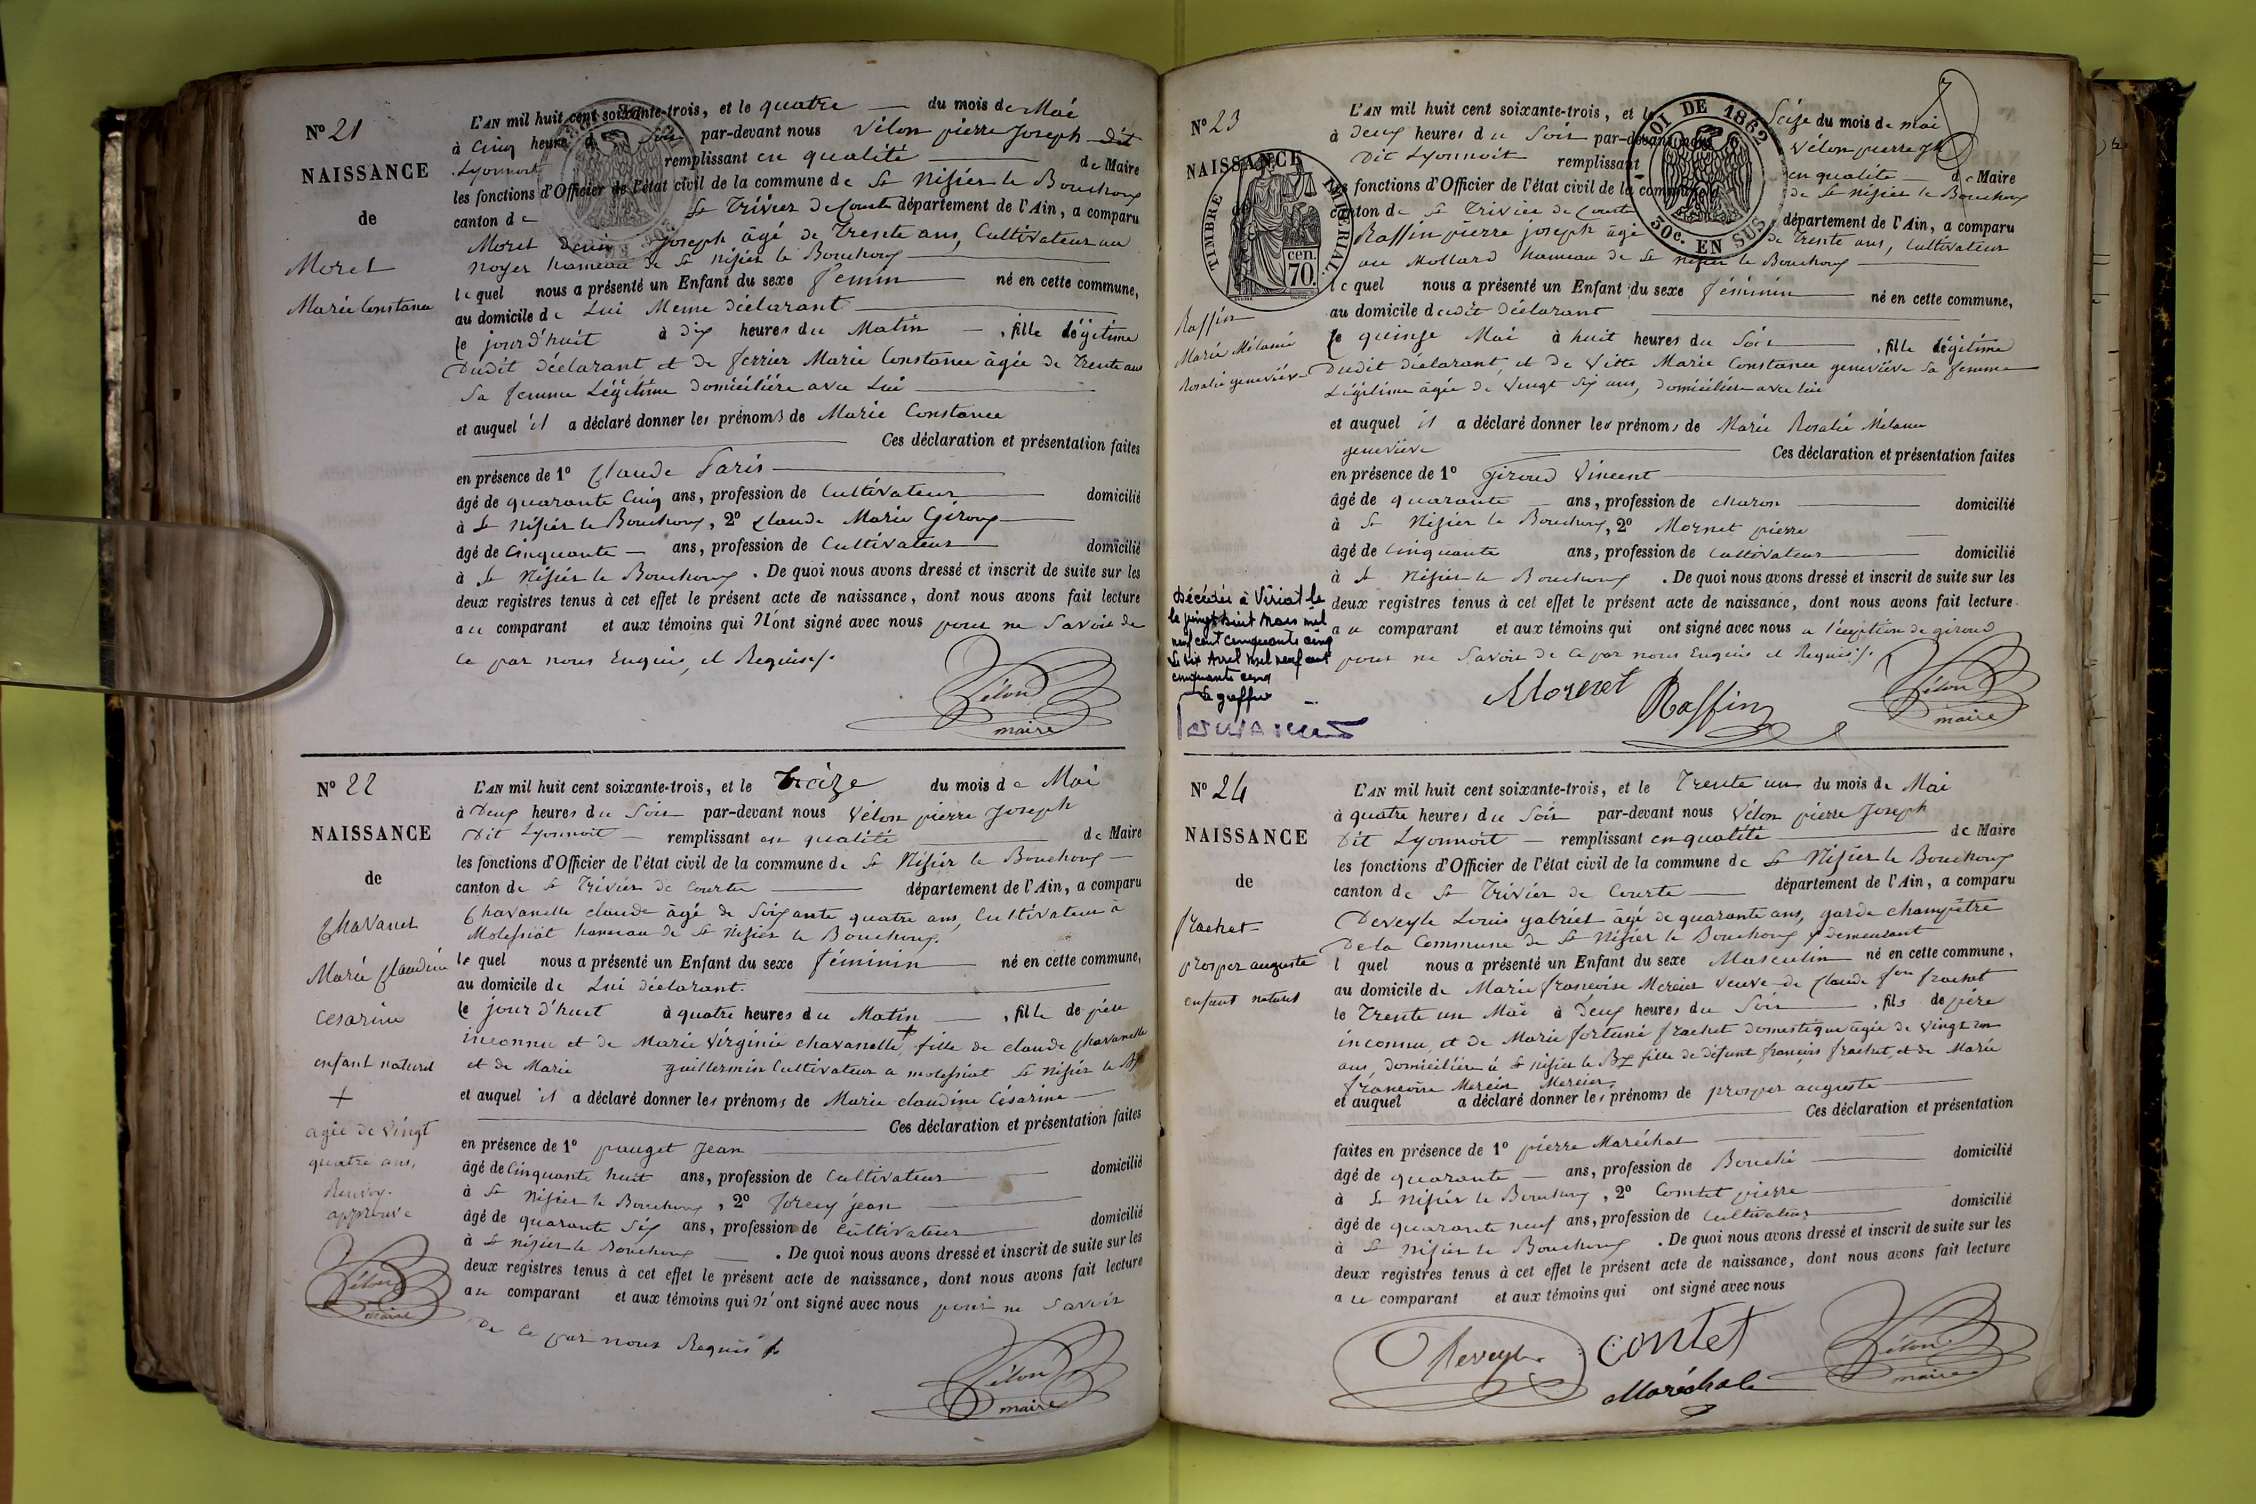 N° 21
NAISSANCE
de
Moret
Marie Constance
L'AN mil huit cent soixante-trois, et le quatre du mois de Mai
à Cinq heures du Soir par-devant nous Vélon pierre Joseph Dit
Lyonnoit remplissant en qualité de Maire
les fonctions d'Officier de l'état civil de la commune de St Nisier le Bouchoux
canton de St Trivier de Courte département de l'Ain, a comparu
Moret Denis Joseph âgé de Trente ans, Cultivateur au
noyer hameau de St nisier le Bouchoux
lequel nous a présenté un Enfant du sexe féminin né en cette commune,
au domicile de Lui Meme déclarant
le jourd'huit à dix heures du Matin , fille légitime
Dudit déclarant et de ferrier Marie Constance âgée de Trente ans
Sa femme Légitime domiciliére avec Lui
et auquel il a déclaré donner les prénoms de Marie Constance
Ces déclaration et présentation faites
en présence de 1° Claude Paris
âgé de quarante Cinq ans, profession de Cultivateur domicilié
à St Nisier le Bouchoux, 2° Claude Marie Giroux
âgé de Cinquante ans, profession de Cultivateur domicilié
à St Nisier le Bouchoux. De quoi nous avons dressé et inscrit de suite sur les
deux registres tenus à cet effet le présent acte de naissance, dont nous avons fait lecture
au comparant et aux témoins qui N'ont signé avec nous pour ne Savoir de
ce par nous Enquis, et Requis
Vélon
maire
N° 22
NAISSANCE
de
Chavanel
Marie Claudine
Cesarine
enfant naturel
+
agée de Vingt
quatre ans,
Renvoy
approuvé
Vélon
maire
L'AN mil huit cent soixante-trois, et le Treize du mois de Mai
à Deux heures du Soir par-devant nous Vélon pierre Joseph
Dit Lyonnoit remplissant en qualité de Maire
les fonctions d'Officier de l'état civil de la commune de St Nisier le Bouchoux
canton de St Trivier de Courte département de l'Ain, a comparu
Chavanelle claude âgé de Soixante quatre ans, Cultivateur à
Molissiat hameau de St Nisier le Bouchoux
lequel nous a présenté un Enfant du sexe féminin né en cette commune,
au domicile de Lui déclarant.
le jourd'huit à quatre heures du Matin , fille de père
inconnu et de Marie Virginie chavanelle + fille de claude Chavanelle
et de Marie guillermin Cultivateur a molissiat St Nisier le Bx
et auquel il a déclaré donner les prénoms de Marie claudine Césarine
Ces déclaration et présentation faites
en présence de 1° pauget Jean
âgé de Cinquante huit ans, profession de Cultivateur domicilié
à St Nisier le Bouchoux, 2° jean
âgé de quarante Six ans, profession de Cultivateur domicilié
à St nisier le Bouchoux. De quoi nous avons dressé et inscrit de suite sur les
deux registres tenus à cet effet le présent acte de naissance, dont nous avons fait lecture
au comparant et aux témoins qui N'ont signé avec nous pour ne Savoir
De ce par nous Requis
Vélon
maire
N° 23
NAISSANCE
de
TIMBRE IMPERIAL.
70 cen.
Raffin
Marie Mélanie
Rosalie geneviève
Décédée à Viriat le
le vingt huit Mars mil
neuf cent cinquante cinq
Le six Avril Mil neuf cent
cinquante cinq
Le greffier
LOI DE 1862
30c. EN SUS
L'AN mil huit cent soixante-trois, et le Seize du mois de mai
à Deux heures du Soir par-devant nous Vélon pierre Jh
Dit Lyonnoit remplissant en qualité de Maire
les fonctions d'Officier de l'état civil de la commune de St Nisier le Bouchoux
canton de St Trivier de Courte département de l'Ain, a comparu
Raffin pierre joseph âgé de Trente ans, Cultivateur
au Mollard hameau de St nisier le Bouchoux
lequel nous a présenté un Enfant du sexe féminin né en cette commune,
au domicile dudit déclarant
le quinze Mai à huit heures du Soir , fille légitime
Dudit déclarant, et de Vitte Marie Constance geneviève Sa femme
Légitime âgée de Vingt Six ans, domiciliée avec lui
et auquel il a déclaré donner les prénoms de Marie Rosalie Mélanie
geneviève Ces déclaration et présentation faites
en présence de 1° Giroud Vincent
âgé de quarante ans, profession de charon domicilié
à St Nisier le Bouchoux, 2° Mornet pierre
âgé de Cinquante ans, profession de Cultivateur domicilié
à St Nisier le Bouchoux. De quoi nous avons dressé et inscrit de suite sur les
deux registres tenus à cet effet le présent acte de naissance, dont nous avons fait lecture
au comparant et aux témoins qui ont signé avec nous a l'éxeption de giroud
pour ne Savoir de ce par nous Enquis et Requis
Morenet Raffin Vélon
maire
N° 24
NAISSANCE
de
frachet
prosper auguste
enfant naturel
L'AN mil huit cent soixante-trois, et le Trente un du mois de Mai
à quatre heures du Soir par-devant nous Vélon pierre Joseph
Dit Lyonnoit remplissant en qualité de Maire
les fonctions d'Officier de l'état civil de la commune de St Nisier le Bouchoux
canton de St Trivier de Courte département de l'Ain, a comparu
Deveyle Louis gabriel âgé de quarante ans, garde champêtre
De la Commune de St Nisier le Bouchoux y demeurant
lequel nous a présenté un Enfant du sexe Masculin né en cette commune,
au domicile de Marie françoise Mercier veuve de Claude fois frachet
le Trente un Mai à Deux heures du Soir , fils de père
inconnu et de Marie fortuné frachet domestique âgée de vingt un
ans, domiciliére à St nisier le Bx fille de défunt françois frachet et de Marie
françoise Mercier Mercier,
et auquel a déclaré donner les prénoms de prosper auguste
Ces déclaration et présentation
faites en présence de 1° pierre Maréchal
âgé de quarante ans, profession de Bouché domicilié
à St Nisier le Bouchoux, 2° Comtet pierre
âgé de quarante neuf ans, profession de Cultivateur domicilié
à St Nisier le Bouchoux. De quoi nous avons dressé et inscrit de suite sur les
deux registres tenus à cet effet le présent acte de naissance, dont nous avons fait lecture
au comparant et aux témoins qui ont signé avec nous
Deveyle contet Vélon
Maréchal maire